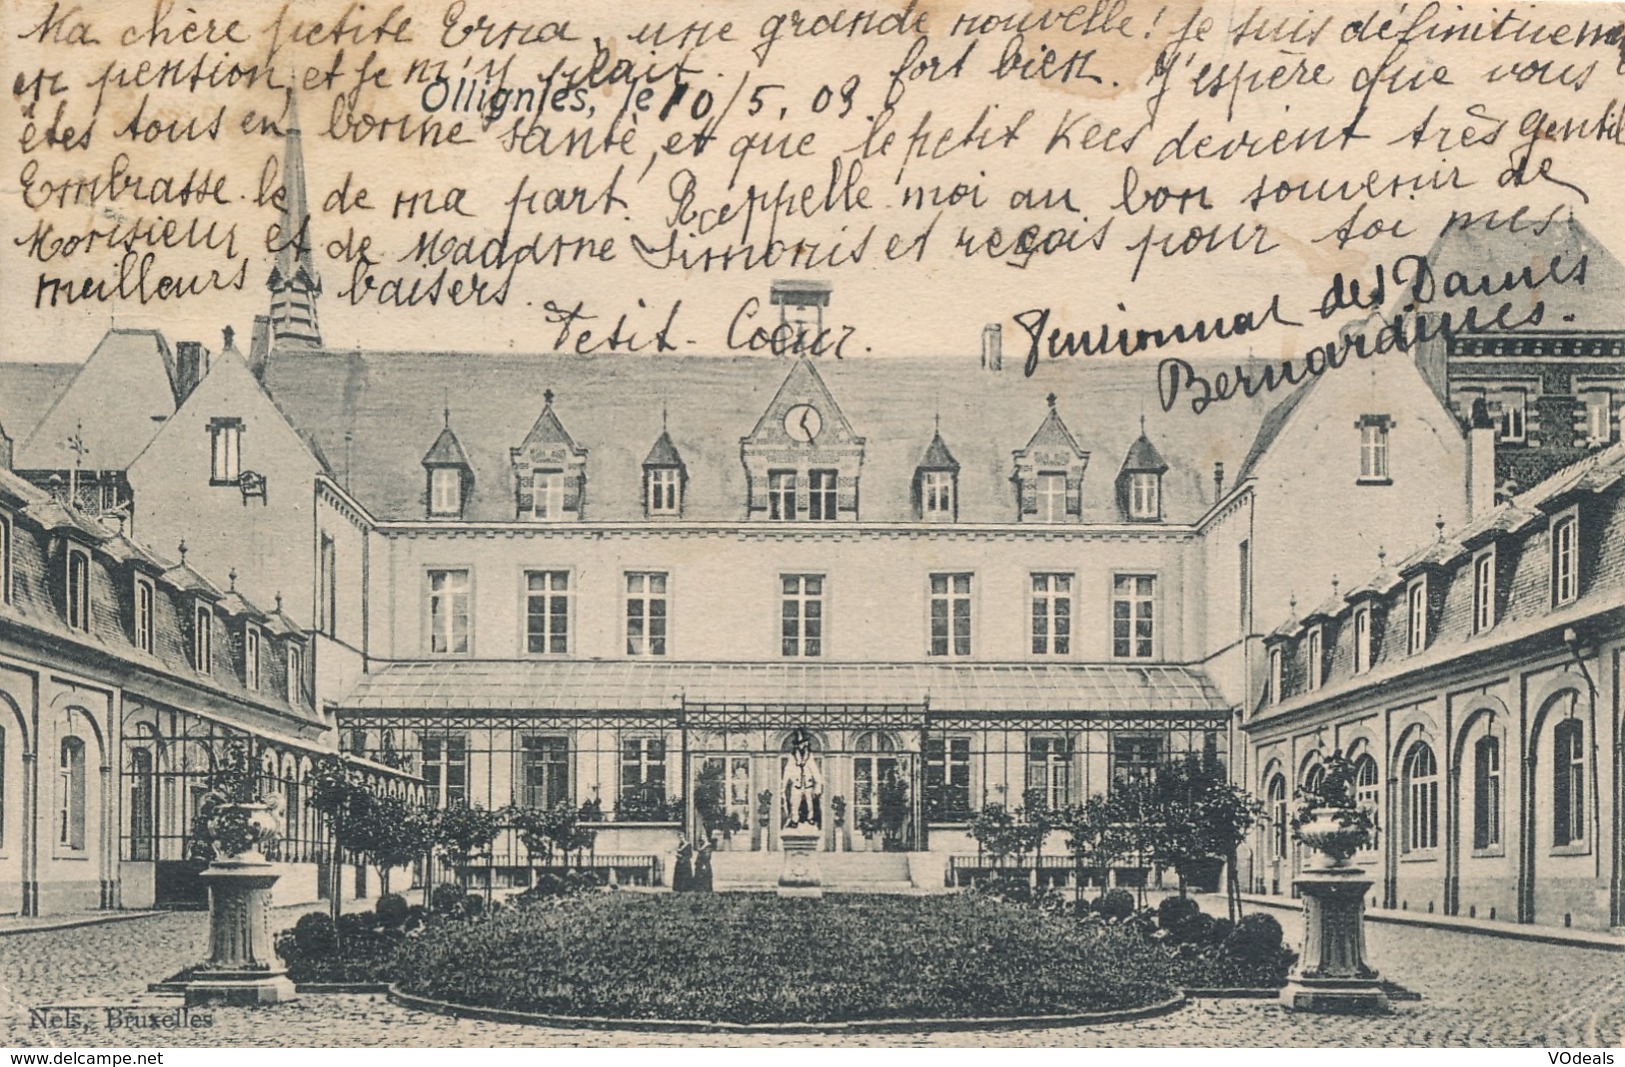 Ma chère petite Erna, une grande nouvelle! Je suis définitivemen
en pension, et je m'y plait fort bien. J'espère que vous
Ollignies, le 10/5. 09
êtes tous en bonne santé, et que le petit Kees devient très gentil
Embrasse-le de ma part. Rappelle moi au bon souvenir de
Monsieur et de Madame Simonis et reçois pour toi mes
meilleurs baisers.
Petit-Coeur.
Pensionnat des Dames
Bernardines.
Nels, Bruxelles
www.delcampe.net
VOdeals